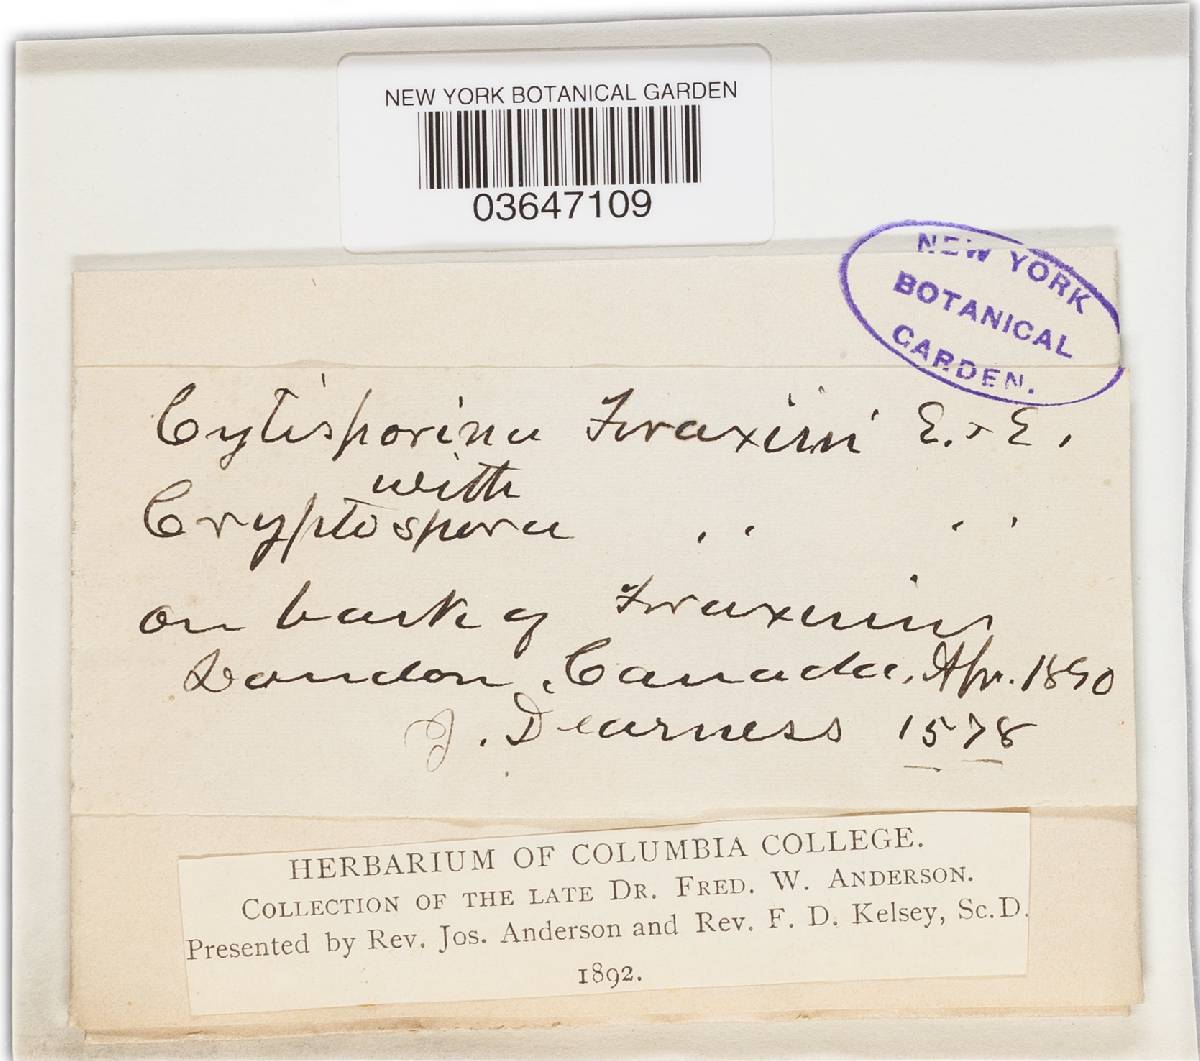 NEW YORK BOTANICAL GARDEN
03647109
NEW YORK
BOTANICAL
GARDEN.
Cytisporina Fraxini E. & E.
with
Cryptospora " "
on bark of Fraxinus
London, Canada, Apr. 1890
J. Dearness 1578
HERBARIUM OF COLUMBIA COLLEGE.
COLLECTION OF THE LATE DR. FRED. W. ANDERSON.
Presented by Rev. Jos. Anderson and Rev. F. D. Kelsey, Sc.D.
1892.